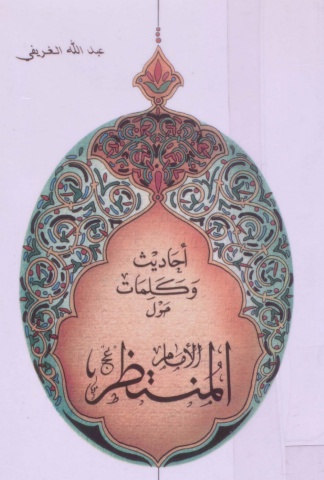 عبد الله الغريفي
أحاديث
وكلمات
حول
الإمام
المنتظر عج